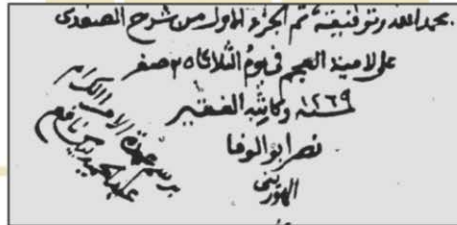 بحمد الله وتوفيقه تم الجزء الاول من شرح الصفدى
على لامية العجم فى يوم الثلاثاء ٢٥ صفر
سنة ١٢٦٩ وكاتبه الفقير
نصر ابو الوفا
الهورينى
برسم عمدة الامرا الكرام
عبد الحميد بن نافع